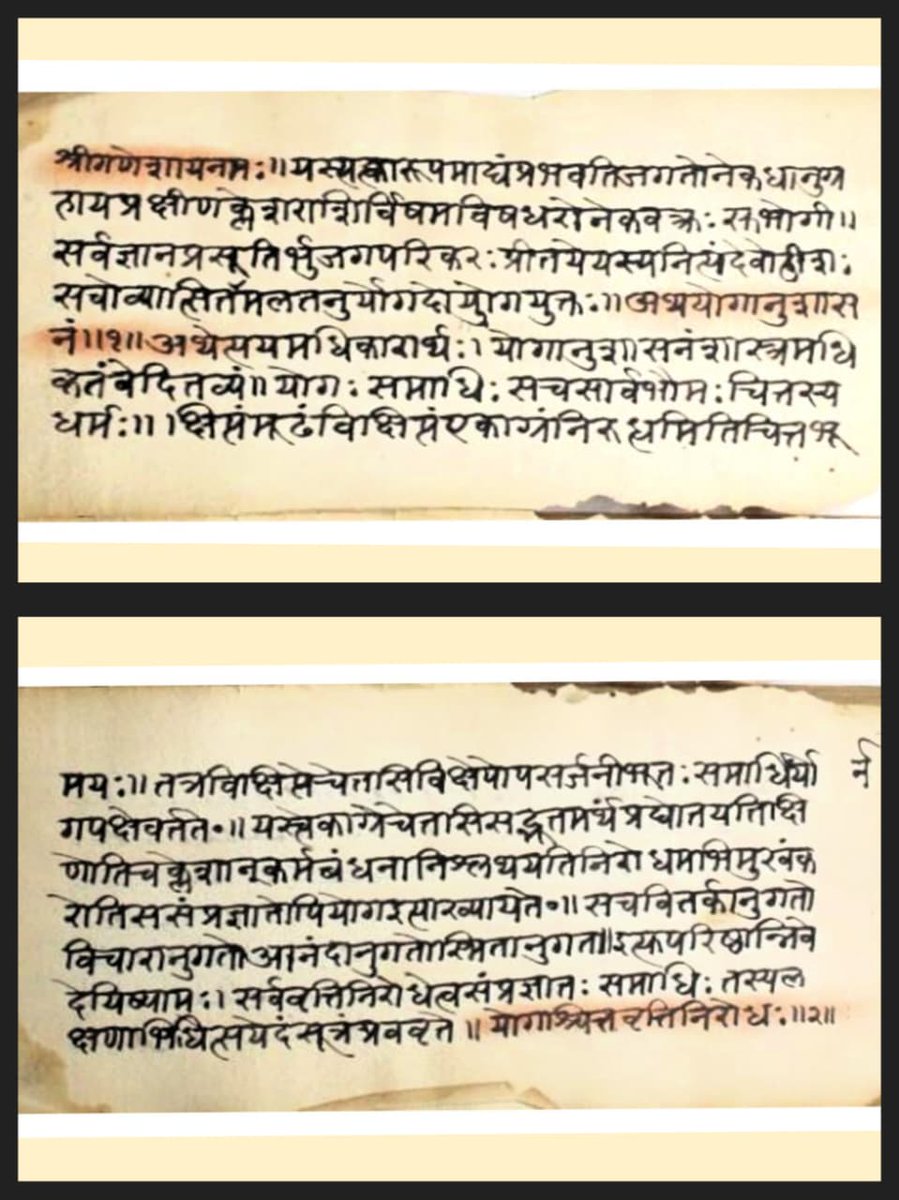 श्रीगणेशायनमः॥यस्त्यत्क्कारूपमाद्यंप्रभवतिजगतोनेकधानुग्र
हायप्रक्षीणक्लेशराशिर्विषमविषधरोनेकवक्रः सभोगी॥
सर्वज्ञानप्रसूतिर्भुजगपरिकरः प्रीतयेयस्यनित्यंदेवोहीशः
सवोव्यात्सितमलतनुर्योगदोयोगयुक्तः॥अथयोगानुशास
नं॥१॥अथेत्ययमधिकारार्थः। योगानुशासनंशास्त्रमधि
कतंवेदितव्यं॥ योगः समाधिः सचसार्वभौमः चित्तस्य
धर्मः॥ ।क्षिप्तंमूढंविक्षिप्तंएकाग्रंनिरुद्धमितिचित्तभू
मयः॥ तत्रविक्षिप्तेचेतसिविक्षेपोपसर्जनीभूतः समाधिर्यो र्न
गपक्षेवर्तते॰॥ यस्त्वेकाग्रेचेतसिसद्भूतमर्थंप्रद्योतयतिक्षि
णोतिचक्लेशान्कर्मबंधनानिश्लथयतिनिरोधमभिमुखंक
रोतिससंप्रज्ञातोपियोगइत्याख्यायते॰॥ सचवितर्कानुगतो
विचारानुगतोआनंदानुगतोस्मितानुगत॥इत्युपरिष्ठान्निवे
देयिष्यामः। सर्ववृत्तिनिरोधेत्वसंप्रज्ञातः समाधिः तस्यल
क्षणाभिधित्सयेदंसूत्रंप्रववृते ॥ योगश्चित्तवृत्तिनिरोधः॥२॥